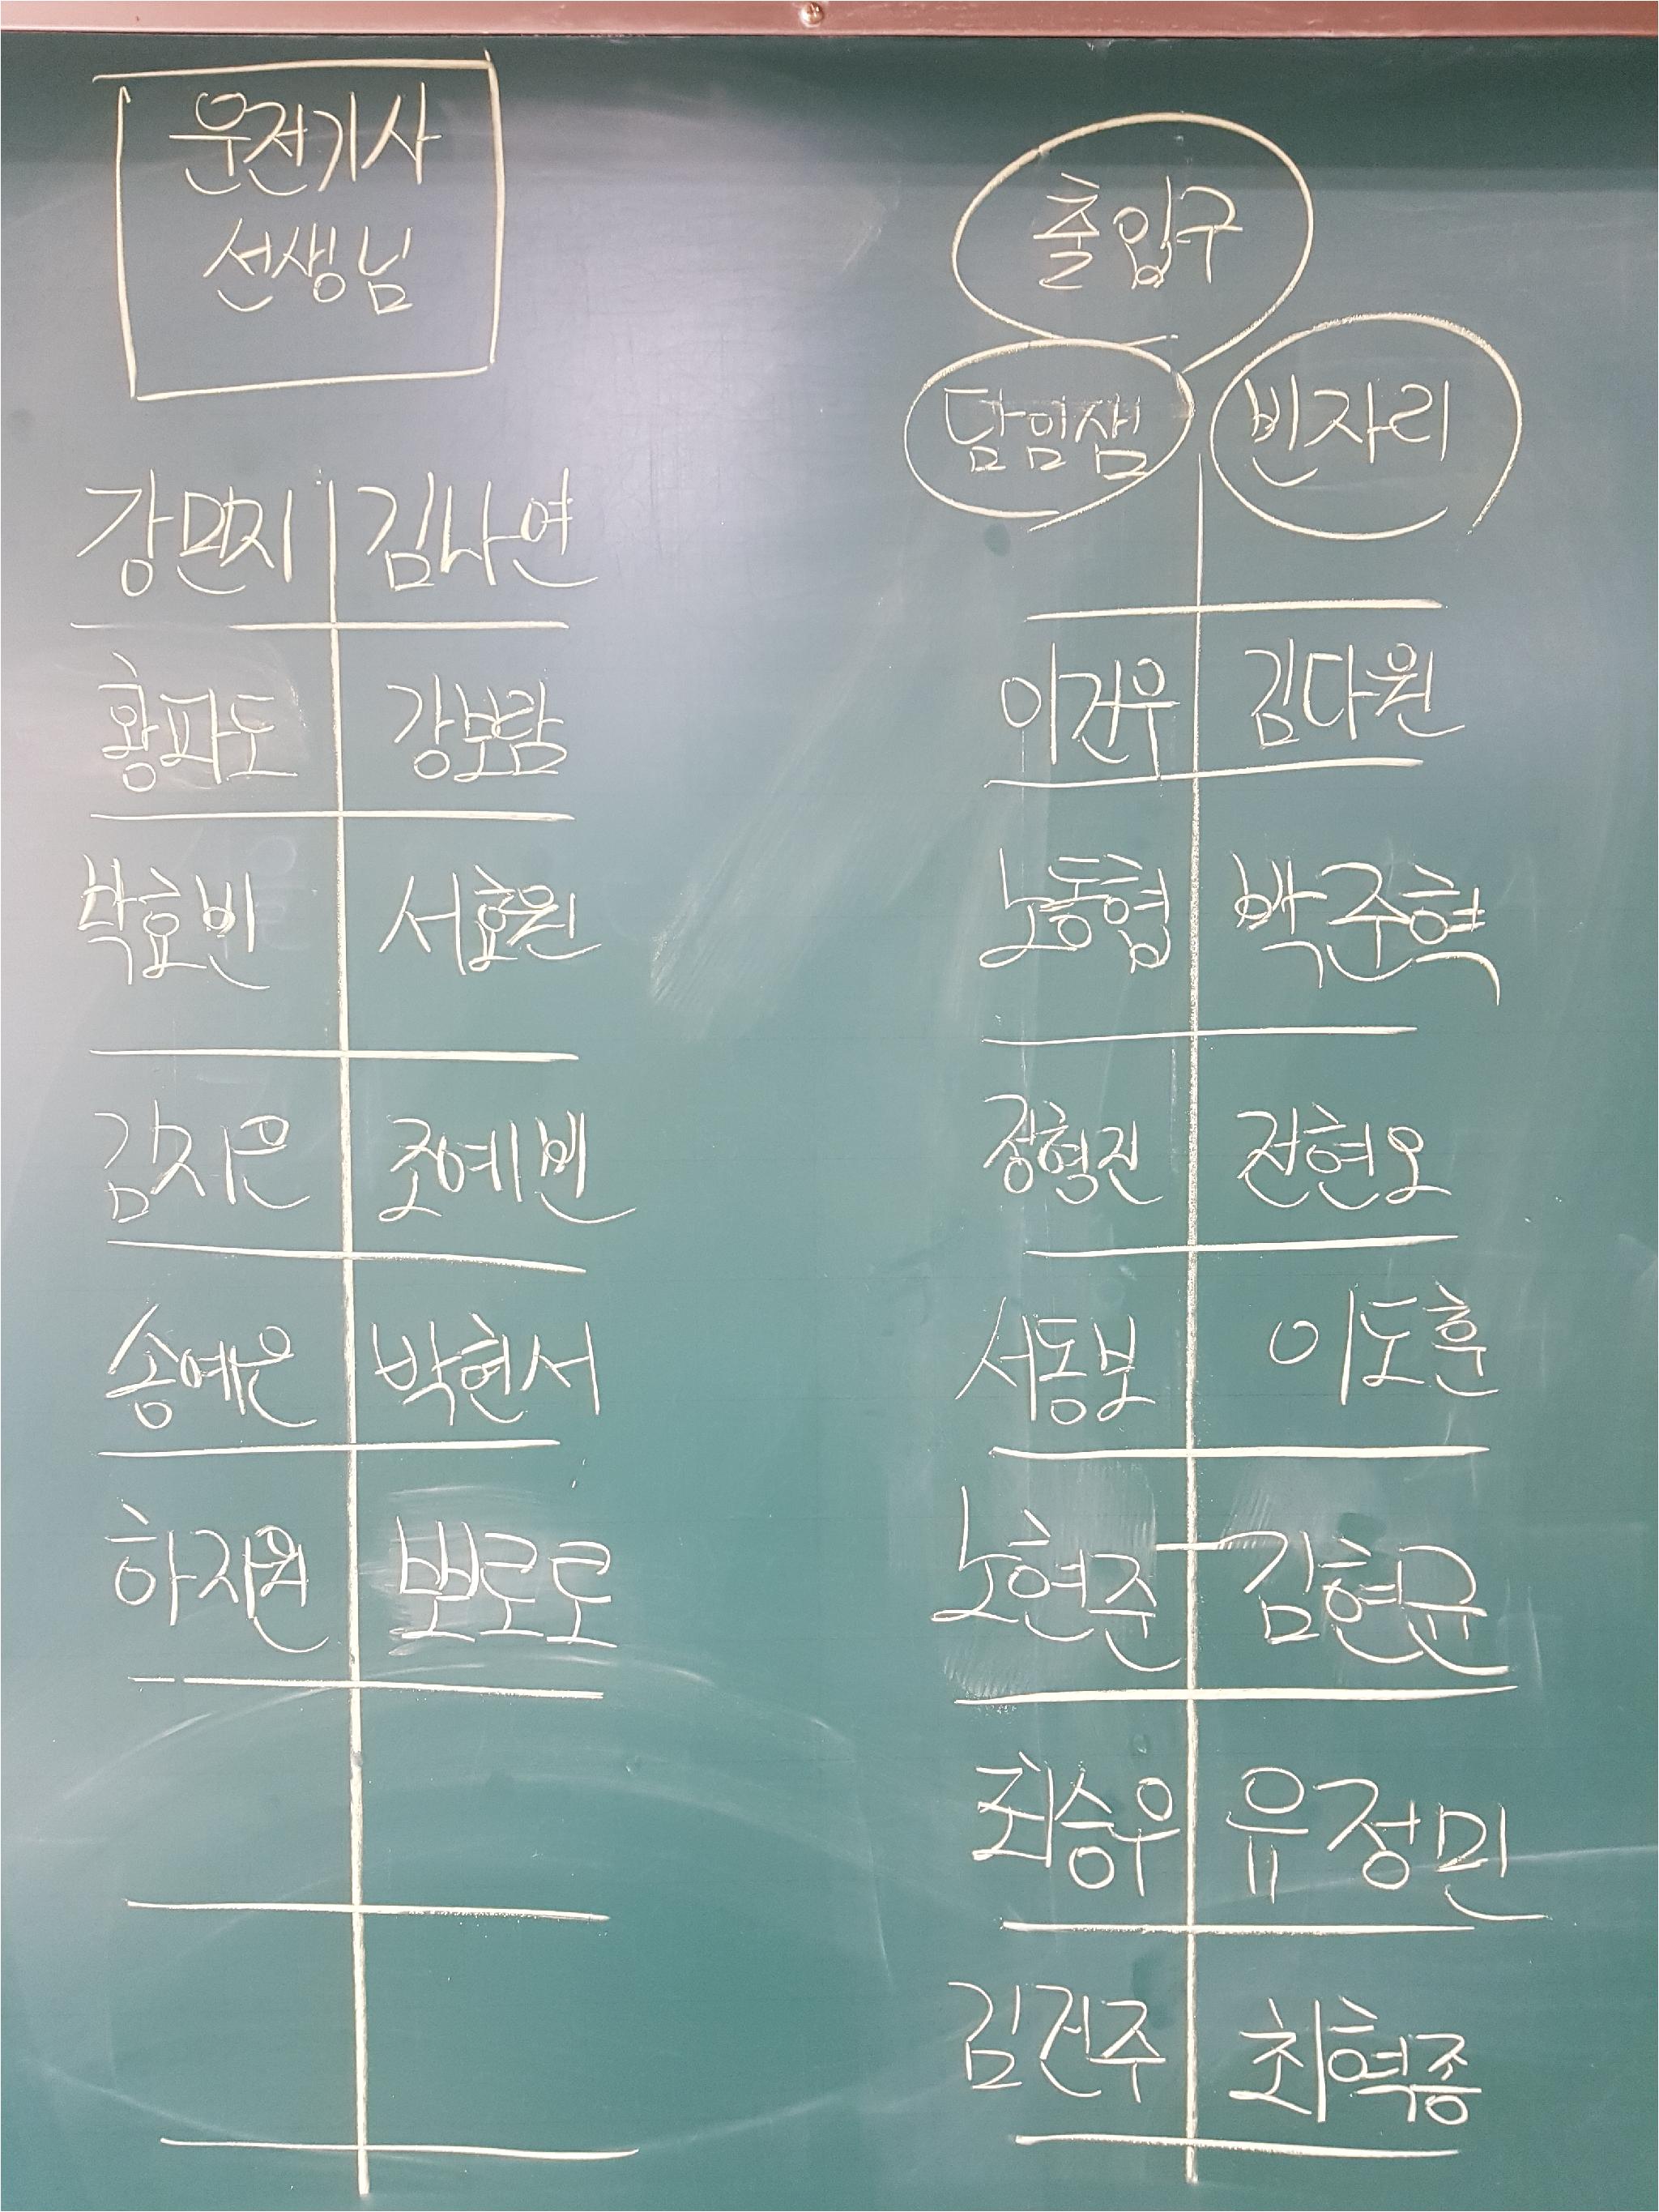 운전기사
선생님
출입구
담임샘 빈자리
강민지 김나연
황파도 강보람
박효빈 서효원
김지은 조예빈
송예은 박현서
하지원 뽀로로
이건우 김다원
노동협 박준혁
장형진 전현오
서동보 이도훈
노현준 김현규
최승우 유정민
김건주 최혁종